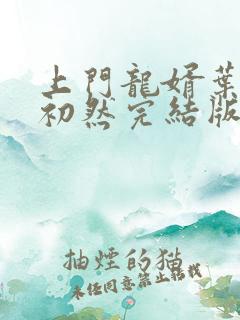 上門龍婿葉
初然完結版
抽煙的猫
未任同意禁止轉載